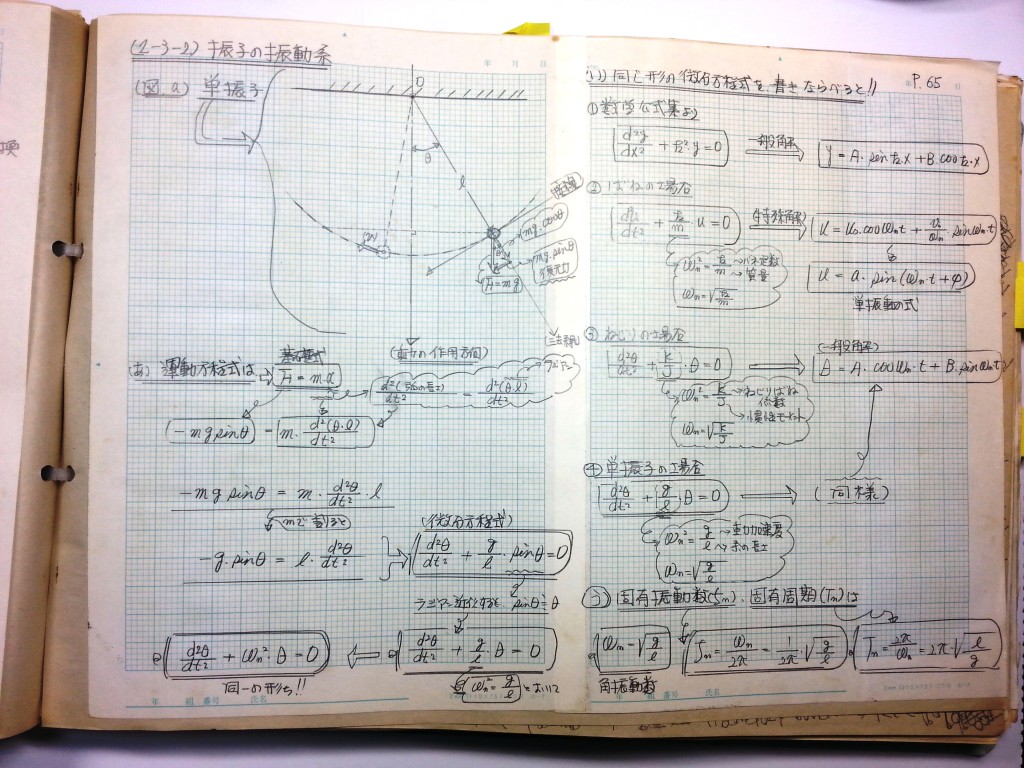 (2-3-2) 振子の振動系
(図a) 単振子
O
θ
l
mg・cosθ
mg・sinθ
復元力
F=mg
(重力の作用方向)
(あ) 運動方程式は
基本式
F = mα
d²(弧の長さ)/dt² = d²(θ・l)/dt²
-mg sinθ = m・d²(θ・l)/dt²
-mg sinθ = m・d²θ/dt²・l
mで割ると
-g・sinθ = l・d²θ/dt²
(微分方程式)
d²θ/dt² + g/l・sinθ = 0
sinθ≒θ
d²θ/dt² + g/l・θ = 0
ωn² = g/l とおいて
d²θ/dt² + ωn²・θ = 0
同一の形ち!!
年 組 番号 氏名
年 月 日
P.65
(い) 同じ形の微分方程式を書きならべると!!
① 数学公式集より
d²y/dx² + k²・y = 0
一般解
y = A・sin k・x + B・cos k・x
② ばねの場合
d²u/dt² + k/m・u = 0
(特殊解)
u = u₀・cosωn t + v₀/ωn・sinωn t
ωn² = k/m →バネ定数 →質量
ωn = √k/m
u = a・sin(ωn・t + φ)
単振動の式
③ ねじりの場合
d²θ/dt² + K/J・θ = 0
(一般解)
θ = A・cosωn・t + B・sinωn t
ωn² = K/J →ねじりばね係数
→慣性モーメント
ωn = √K/J
④ 単振子の場合
d²θ/dt² + g/l・θ = 0
(同様)
ωn² = g/l →重力加速度 →糸の長さ
ωn = √g/l
(う) 固有振動数(fn)、固有周期(Tn)は
ωn = √g/l
fn = ωn/2π = 1/2π・√g/l
Tn = 2π/ωn = 2π・√l/g
角振動数
年 組 番号 氏名